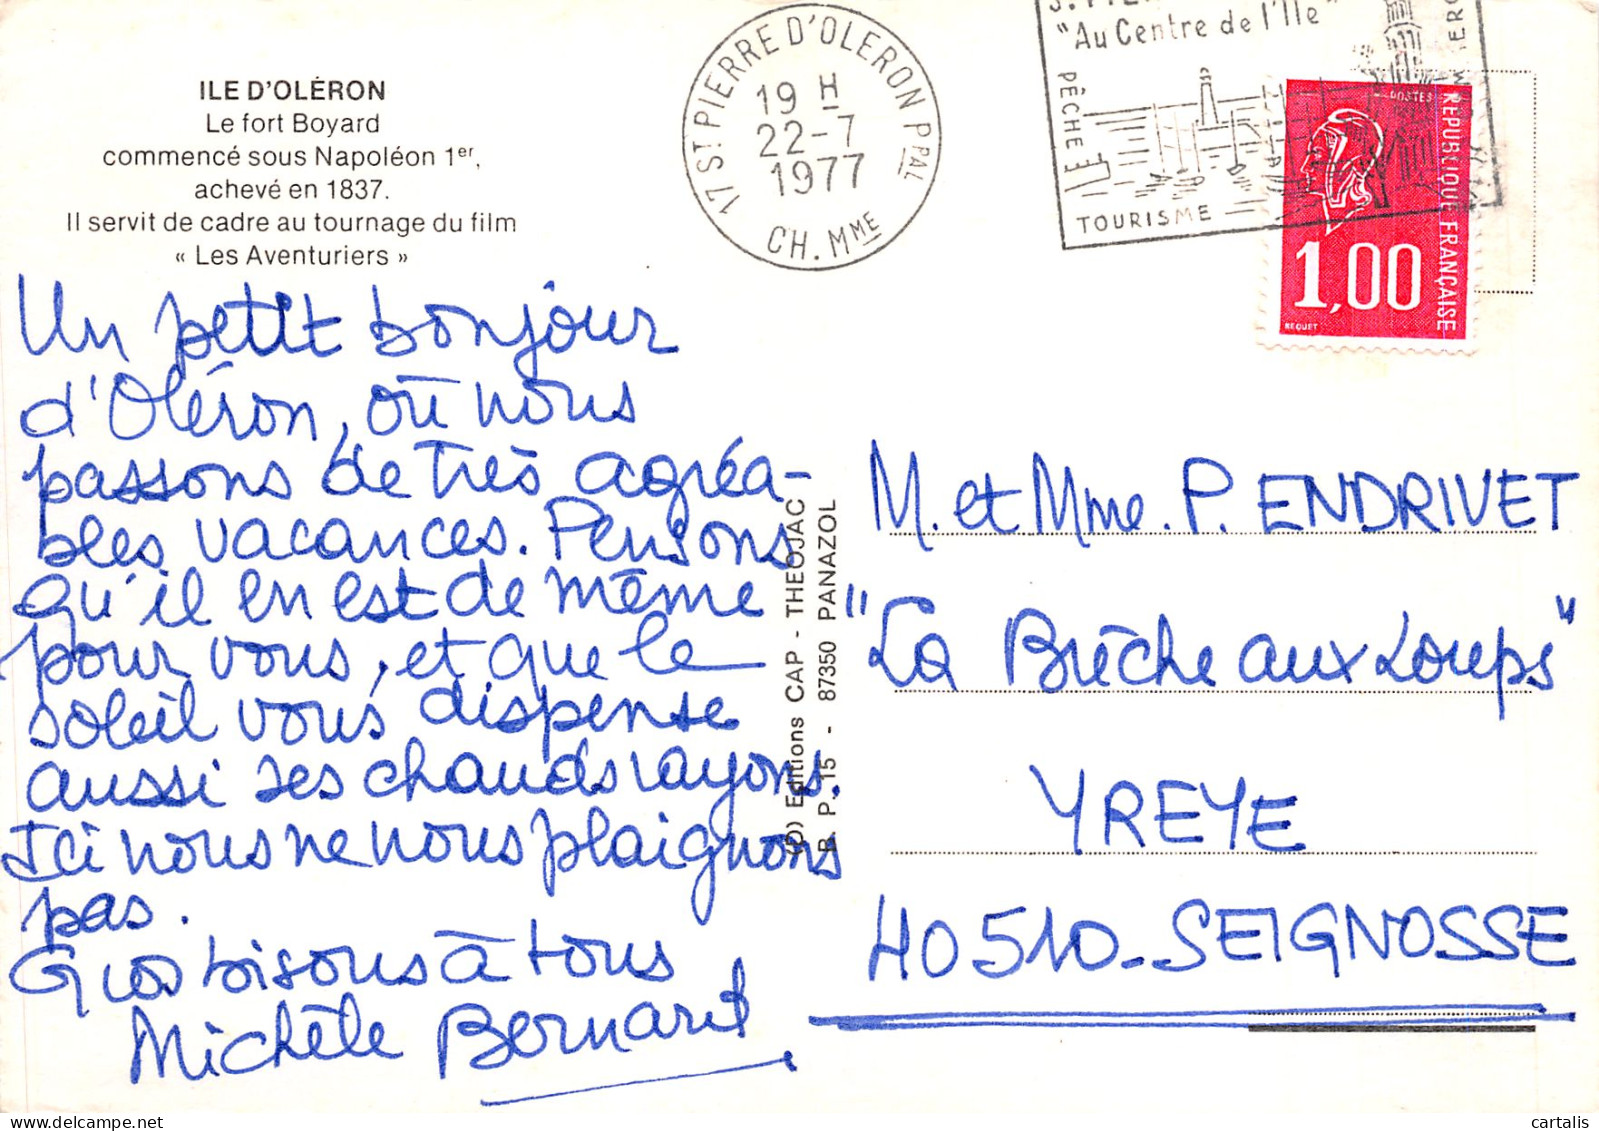 ILE D'OLÉRON
Le fort Boyard
commencé sous Napoléon 1er,
achevé en 1837.
Il servit de cadre au tournage du film
« Les Aventuriers »
17 ST PIERRE D'OLERON PPAL
19 H
22-7
1977
CH. MME
"Au Centre de l'Ile"
PÊCHE
TOURISME
POSTES
REPUBLIQUE FRANÇAISE
1,00
BEQUET
Un petit bonjour
d'Oléron, où nous
passons de très agréa-
bles vacances. Pensons
qu'il en est de même
pour vous, et que le
soleil vous dispense
aussi ses chauds rayons.
Ici nous ne nous plaignons
pas.
Gros bisous à tous
Michèle Bernard
(D) Editions CAP - THEOJAC
R. P. 15 - 87350 PANAZOL
M. et Mme. P. ENDRIVET
"La Brèche aux Loups"
YREYE
40510_SEIGNOSSE
cartalis